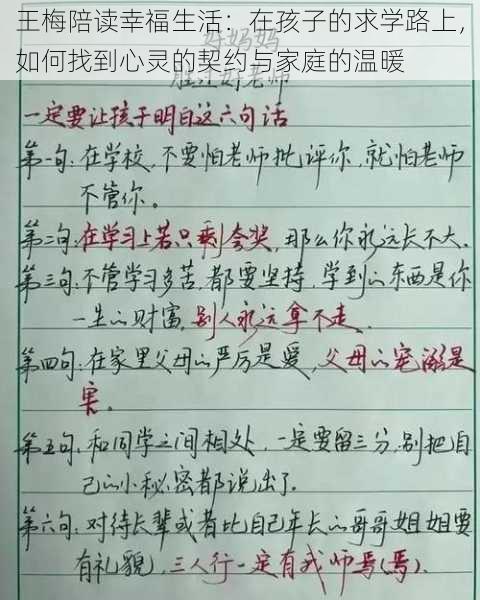 王梅陪读幸福生活：在孩子的求学路上，
如何找到心灵的契约与家庭的温暖
好妈妈
胜过好老师
一定要让孩子明白这六句话
第一句：在学校，不要怕老师批评你，就怕老师
不管你。
第二句：在学习上若只剩夸奖，那么你永远长不大。
第三句：不管学习多苦，都要坚持，学到的东西是你
一生的财富，别人永远拿不走。
第四句：在家里父母的严厉是爱，父母的宠溺是
害。
第五句：和同学之间相处，一定要留三分，别把自
己的小秘密都说出了。
第六句：对待长辈或者比自己年长的哥哥姐姐要
有礼貌，三人行一定有我师焉（焉）。